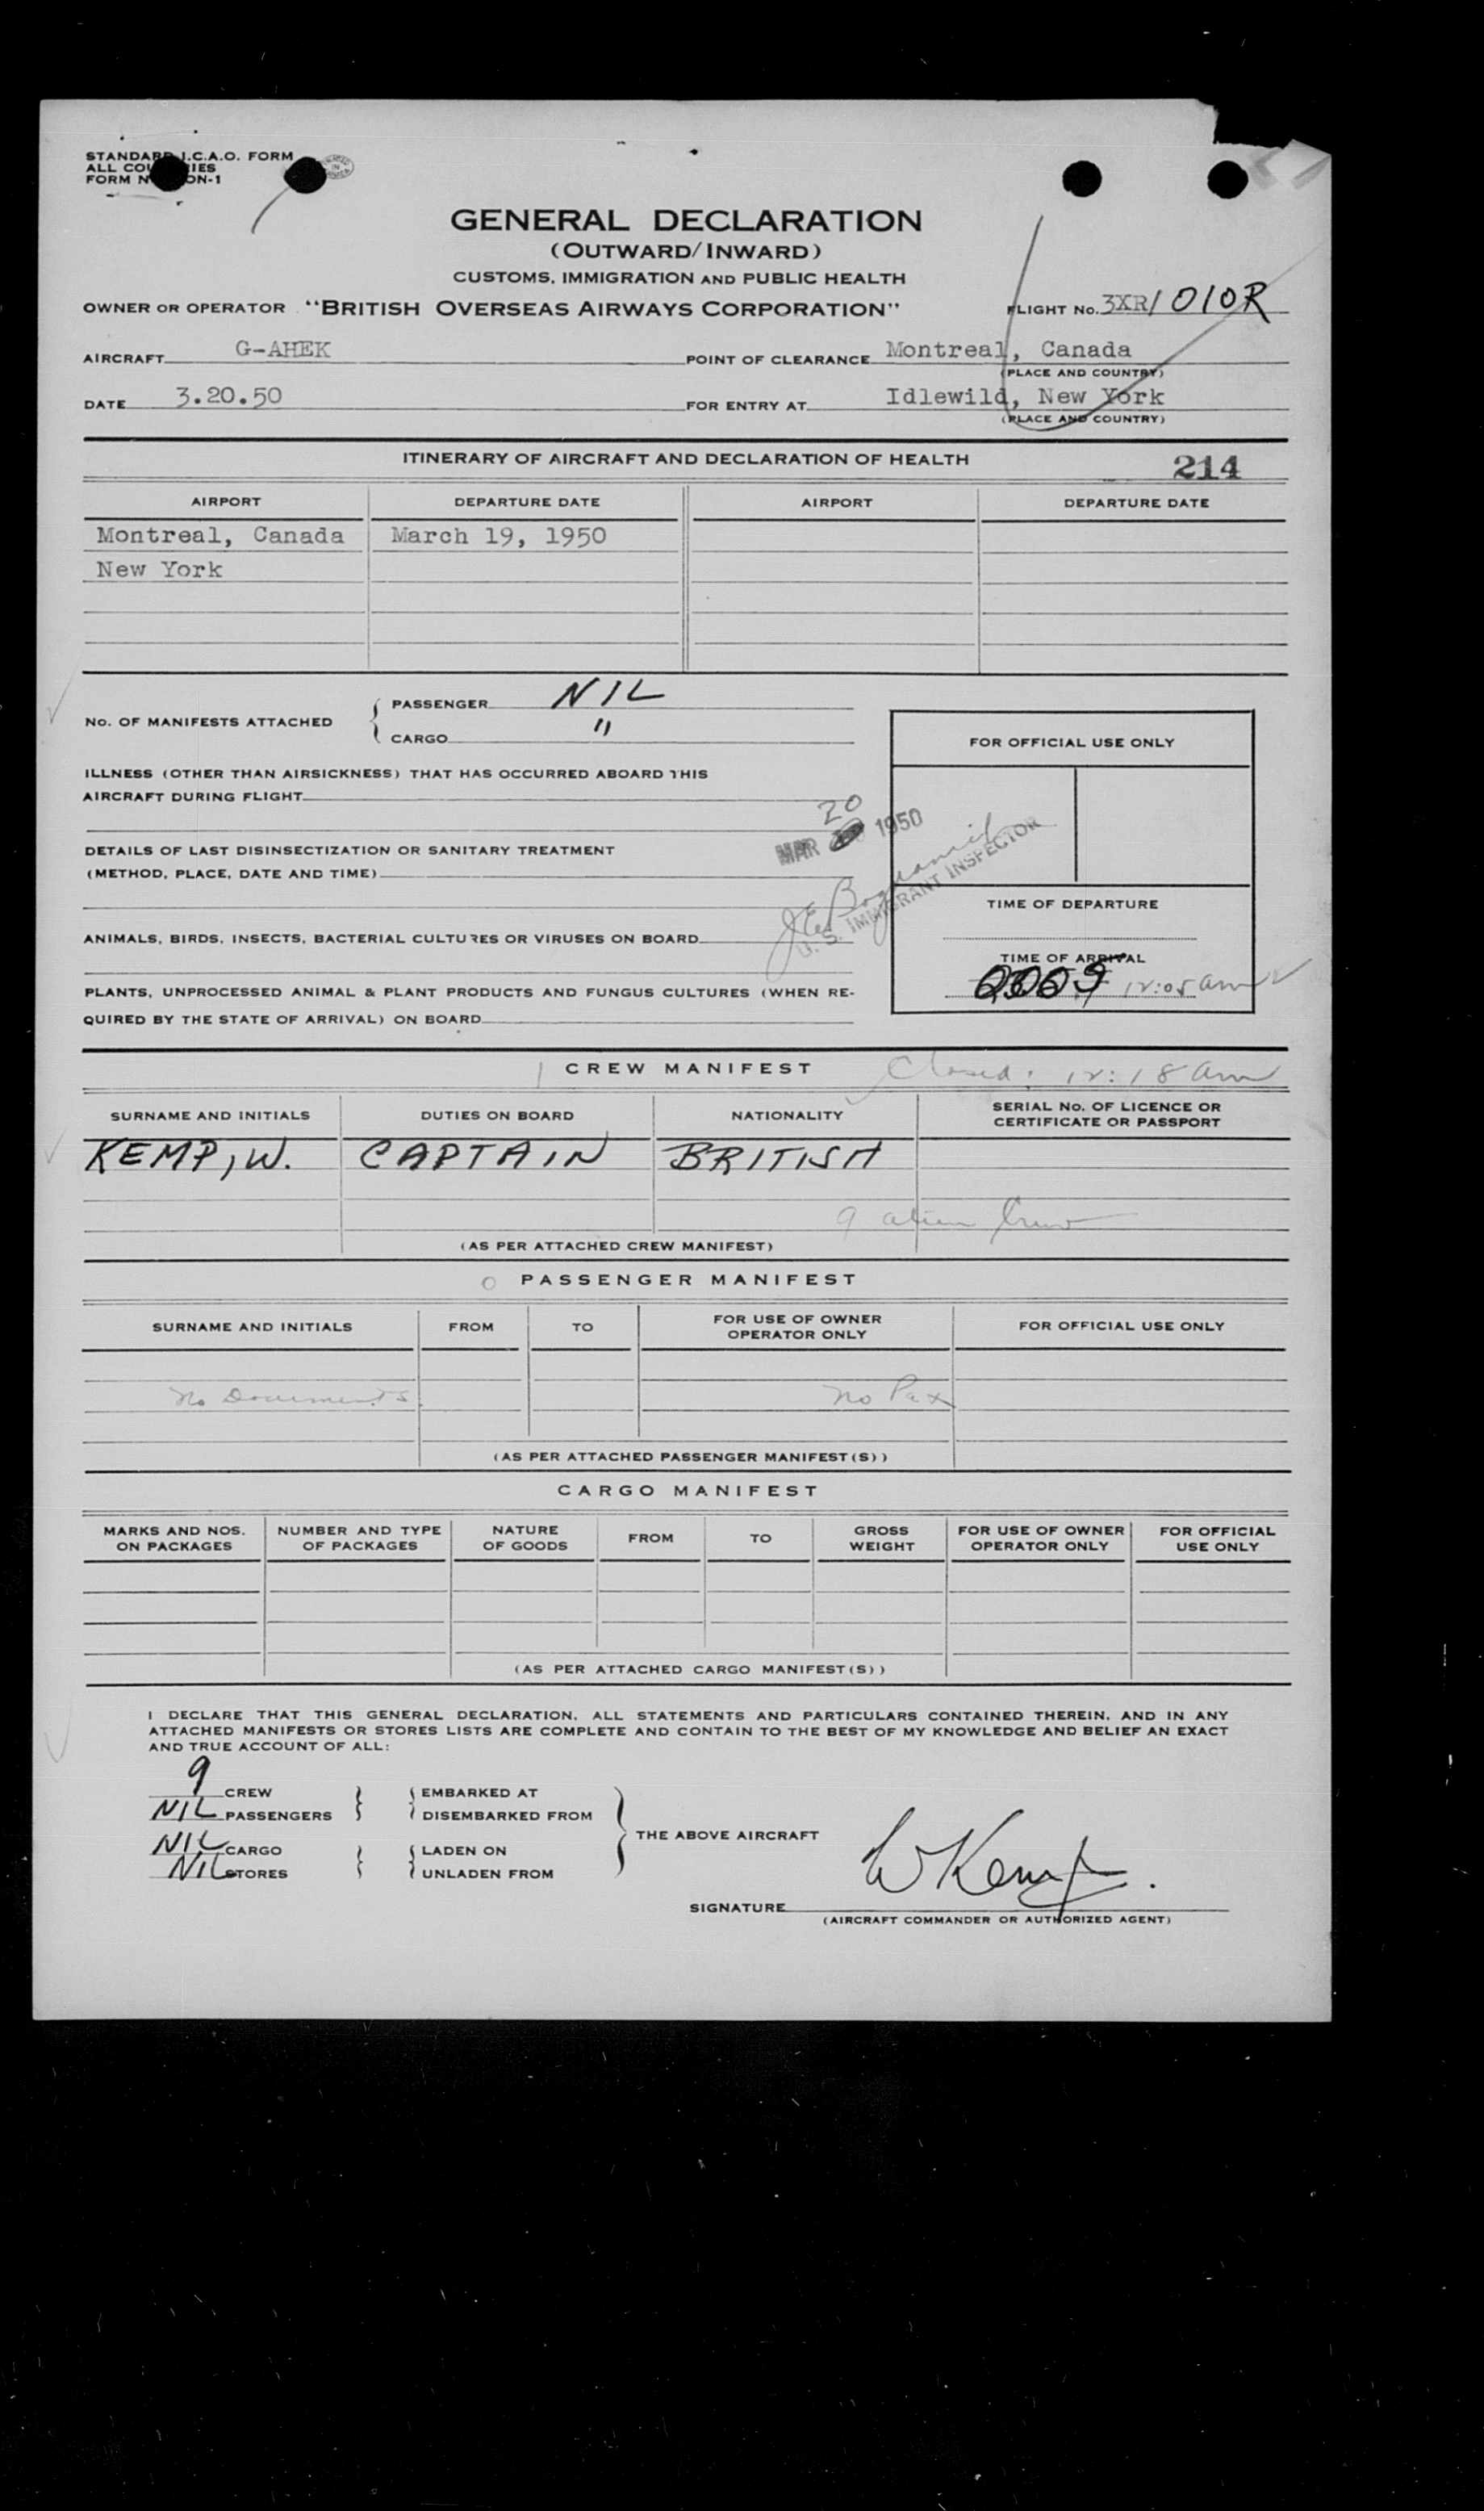 STANDARD I.C.A.O. FORM
ALL COUNTRIES
FORM N ON-1
GENERAL DECLARATION
(OUTWARD/INWARD)
CUSTOMS, IMMIGRATION AND PUBLIC HEALTH
OWNER OR OPERATOR "BRITISH OVERSEAS AIRWAYS CORPORATION" FLIGHT No. 3XR/010R
AIRCRAFT G-AHEK POINT OF CLEARANCE Montreal, Canada
(PLACE AND COUNTRY)
DATE 3.20.50 FOR ENTRY AT Idlewild, New York
(PLACE AND COUNTRY)
ITINERARY OF AIRCRAFT AND DECLARATION OF HEALTH 214
AIRPORT DEPARTURE DATE AIRPORT DEPARTURE DATE
Montreal, Canada March 19, 1950
New York
No. OF MANIFESTS ATTACHED
PASSENGER NIL
CARGO "
FOR OFFICIAL USE ONLY
ILLNESS (OTHER THAN AIRSICKNESS) THAT HAS OCCURRED ABOARD THIS
AIRCRAFT DURING FLIGHT
20
MAR 1950
DETAILS OF LAST DISINSECTIZATION OR SANITARY TREATMENT
(METHOD, PLACE, DATE AND TIME)
U. S. IMMIGRANT INSPECTOR
TIME OF DEPARTURE
ANIMALS, BIRDS, INSECTS, BACTERIAL CULTURES OR VIRUSES ON BOARD
TIME OF ARRIVAL
12:05 am
PLANTS, UNPROCESSED ANIMAL & PLANT PRODUCTS AND FUNGUS CULTURES (WHEN RE-
QUIRED BY THE STATE OF ARRIVAL) ON BOARD
CREW MANIFEST Closed: 12:18 am
SURNAME AND INITIALS DUTIES ON BOARD NATIONALITY SERIAL No. OF LICENCE OR
CERTIFICATE OR PASSPORT
KEMP, W. CAPTAIN BRITISH
9 alien Crew
(AS PER ATTACHED CREW MANIFEST)
0 PASSENGER MANIFEST
SURNAME AND INITIALS FROM TO FOR USE OF OWNER
OPERATOR ONLY FOR OFFICIAL USE ONLY
No Documents No Pax
(AS PER ATTACHED PASSENGER MANIFEST(S))
CARGO MANIFEST
MARKS AND NOS.
ON PACKAGES NUMBER AND TYPE
OF PACKAGES NATURE
OF GOODS FROM TO GROSS
WEIGHT FOR USE OF OWNER
OPERATOR ONLY FOR OFFICIAL
USE ONLY
(AS PER ATTACHED CARGO MANIFEST(S))
I DECLARE THAT THIS GENERAL DECLARATION, ALL STATEMENTS AND PARTICULARS CONTAINED THEREIN, AND IN ANY
ATTACHED MANIFESTS OR STORES LISTS ARE COMPLETE AND CONTAIN TO THE BEST OF MY KNOWLEDGE AND BELIEF AN EXACT
AND TRUE ACCOUNT OF ALL:
9 CREW EMBARKED AT
NIL PASSENGERS DISEMBARKED FROM
THE ABOVE AIRCRAFT
NIL CARGO LADEN ON
NIL STORES UNLADEN FROM
W Kemp.
SIGNATURE
(AIRCRAFT COMMANDER OR AUTHORIZED AGENT)